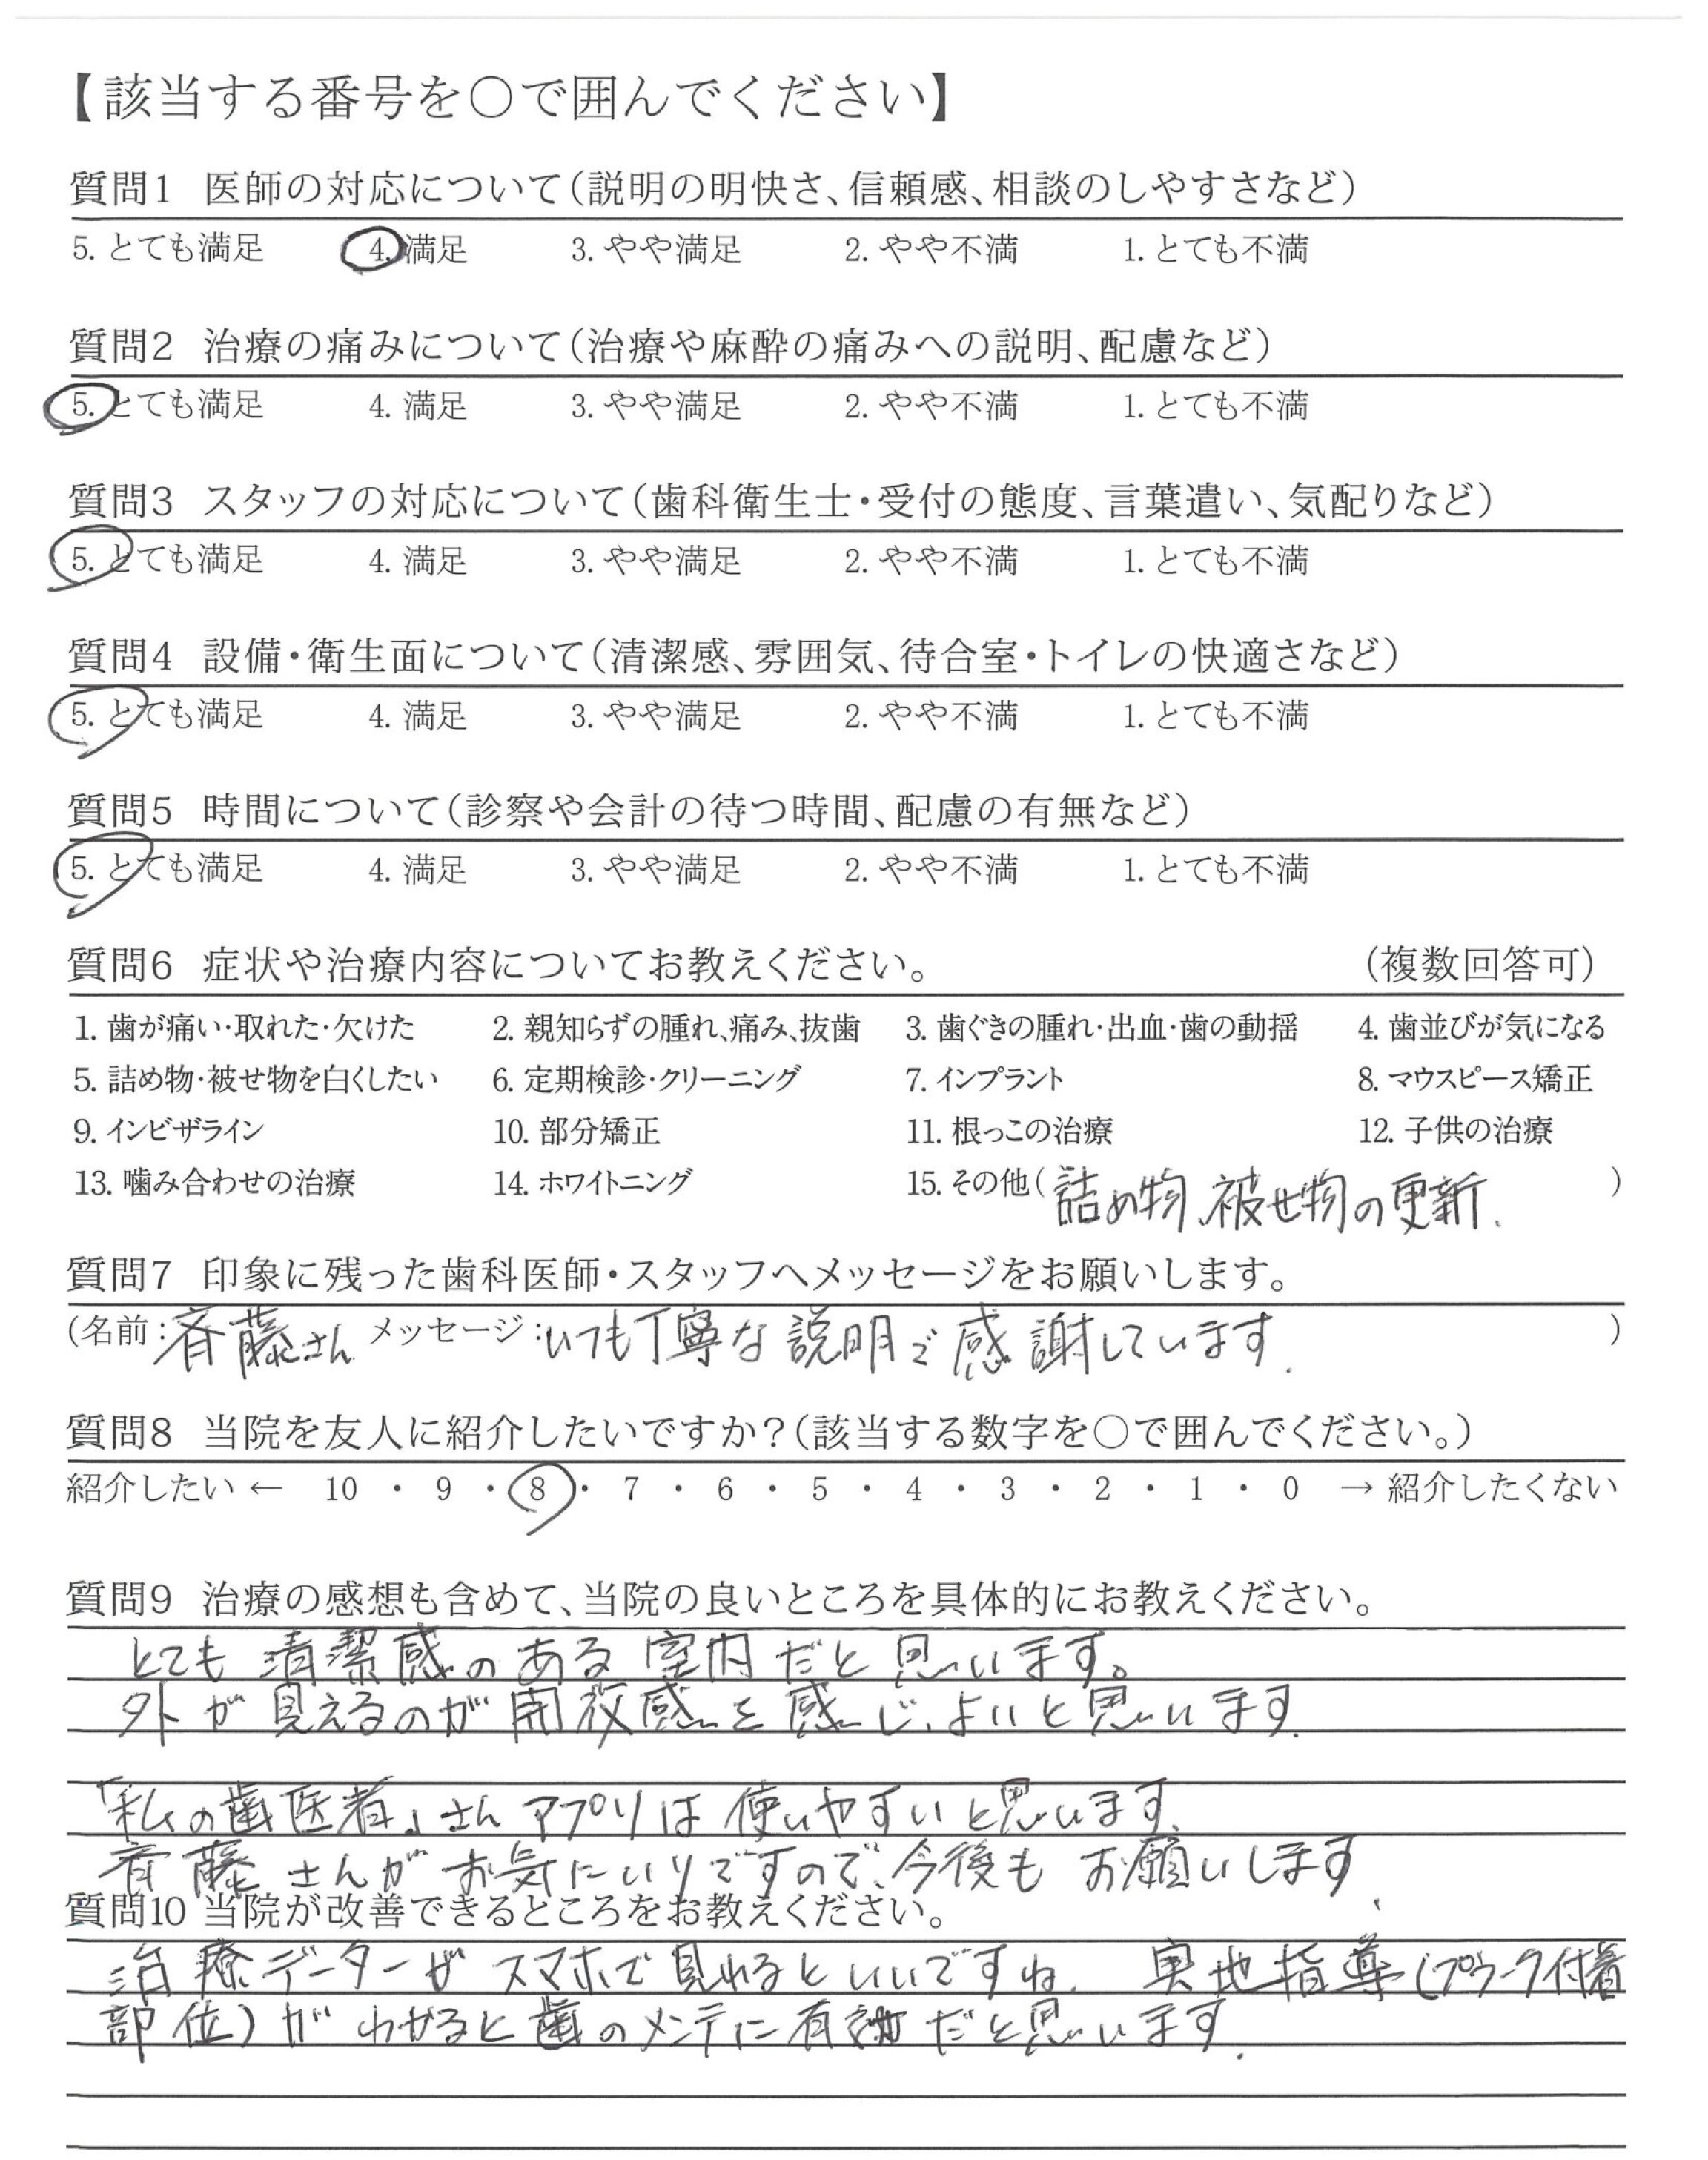 【該当する番号を○で囲んでください】
質問1 医師の対応について(説明の明快さ、信頼感、相談のしやすさなど)
5. とても満足 4. 満足 3. やや満足 2. やや不満 1. とても不満
質問2 治療の痛みについて(治療や麻酔の痛みへの説明、配慮など)
5. とても満足 4. 満足 3. やや満足 2. やや不満 1. とても不満
質問3 スタッフの対応について(歯科衛生士・受付の態度、言葉遣い、気配りなど)
5. とても満足 4. 満足 3. やや満足 2. やや不満 1. とても不満
質問4 設備・衛生面について(清潔感、雰囲気、待合室・トイレの快適さなど)
5. とても満足 4. 満足 3. やや満足 2. やや不満 1. とても不満
質問5 時間について(診察や会計の待つ時間、配慮の有無など)
5. とても満足 4. 満足 3. やや満足 2. やや不満 1. とても不満
質問6 症状や治療内容についてお教えください。 (複数回答可)
1. 歯が痛い・取れた・欠けた 2. 親知らずの腫れ、痛み、抜歯 3. 歯ぐきの腫れ・出血・歯の動揺 4. 歯並びが気になる
5. 詰め物・被せ物を白くしたい 6. 定期検診・クリーニング 7. インプラント 8. マウスピース矯正
9. インビザライン 10. 部分矯正 11. 根っこの治療 12. 子供の治療
13. 噛み合わせの治療 14. ホワイトニング 15. その他(詰め物、被せ物の更新. )
質問7 印象に残った歯科医師・スタッフへメッセージをお願いします。
(名前:斉藤さん メッセージ:いつも丁寧な説明で感謝しています. )
質問8 当院を友人に紹介したいですか?(該当する数字を○で囲んでください。)
紹介したい ← 10 ・ 9 ・ 8 ・ 7 ・ 6 ・ 5 ・ 4 ・ 3 ・ 2 ・ 1 ・ 0 → 紹介したくない
質問9 治療の感想も含めて、当院の良いところを具体的にお教えください。
とても清潔感のある室内だと思います。
外が見えるのが開放感を感じ、よいと思います.
「私の歯医者」さんアプリは使いやすいと思います.
斉藤さんがお気にいりですので、今後もお願いします.
質問10 当院が改善できるところをお教えください。
治療データーがスマホで見れるといいですね. 実地指導(プラーク付着
部位)がわかると歯のメンテに有効だと思います.